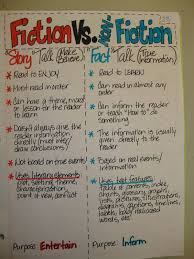 Fiction Vs. Non-Fiction
"Story" Talk (Make Believe)
* Read to ENJOY
* Must read in order
* Can have a theme, moral, or lesson for the reader to learn
* Doesn't always give the reader information directly; must infer and draw conclusions
* Not based on true events
* Uses literary elements
plot, setting, theme, characterization, point of view, conflict
Purpose: Entertain
"Fact" Talk (True Information)
* Read to LEARN
* Can read in almost any order
* Can inform the reader or teach "How to" do something
* The information is usually given directly to the reader
* Based on real events/information
* Uses text features
table of contents, index, charts, glossary, titles,
Purpose: Inform